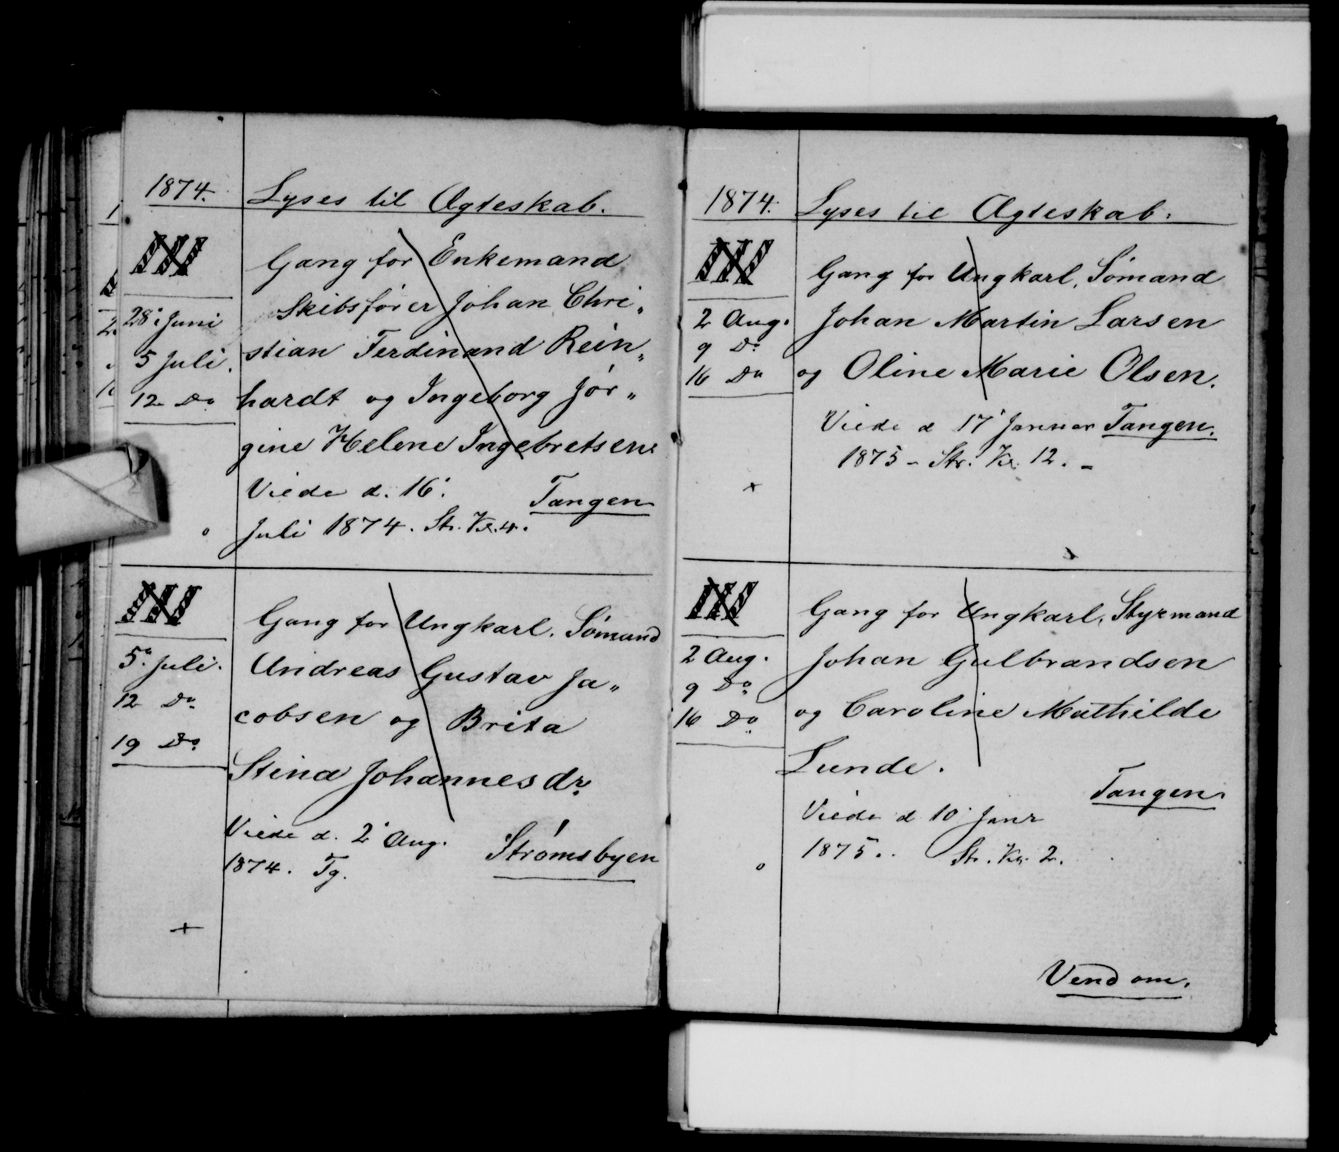 1874. Lyses til Ægteskab.
III Gang for Enkemand
28' Juni Skibsfører Johan Chri„
5 Juli. stian Ferdinand Rein„
12 Do hardt og Ingeborg Jør„
gine Helene Ingebretsen
Viede d. 16' Tangen
Juli 1874. Str. Kl. 4.
III Gang for Ungkarl. Sømand
5' Juli. Andreas Gustav Ja„
12 Do cobsen og Brita
19 Do Stina Johannesdr.
Viede d. 2' Aug. Strømsbyen
1874. Tg.
1874. Lyses til Ægteskab.
III Gang for Ungkarl, Sømand
2 Aug. Johan Martin Larsen
9 Do
16 Do og Oline Marie Olsen.
Viede d 17' Januar Tangen.
1875 - Str. 12. -
III Gang for Ungkarl, Styrmand
2 Aug. Johan Gulbrandsen
9 Do
16 Do og Caroline Mathilde
Lunde.
Tangen.
Viede d 10' Janr
1875. Str. 2.
Vend om.